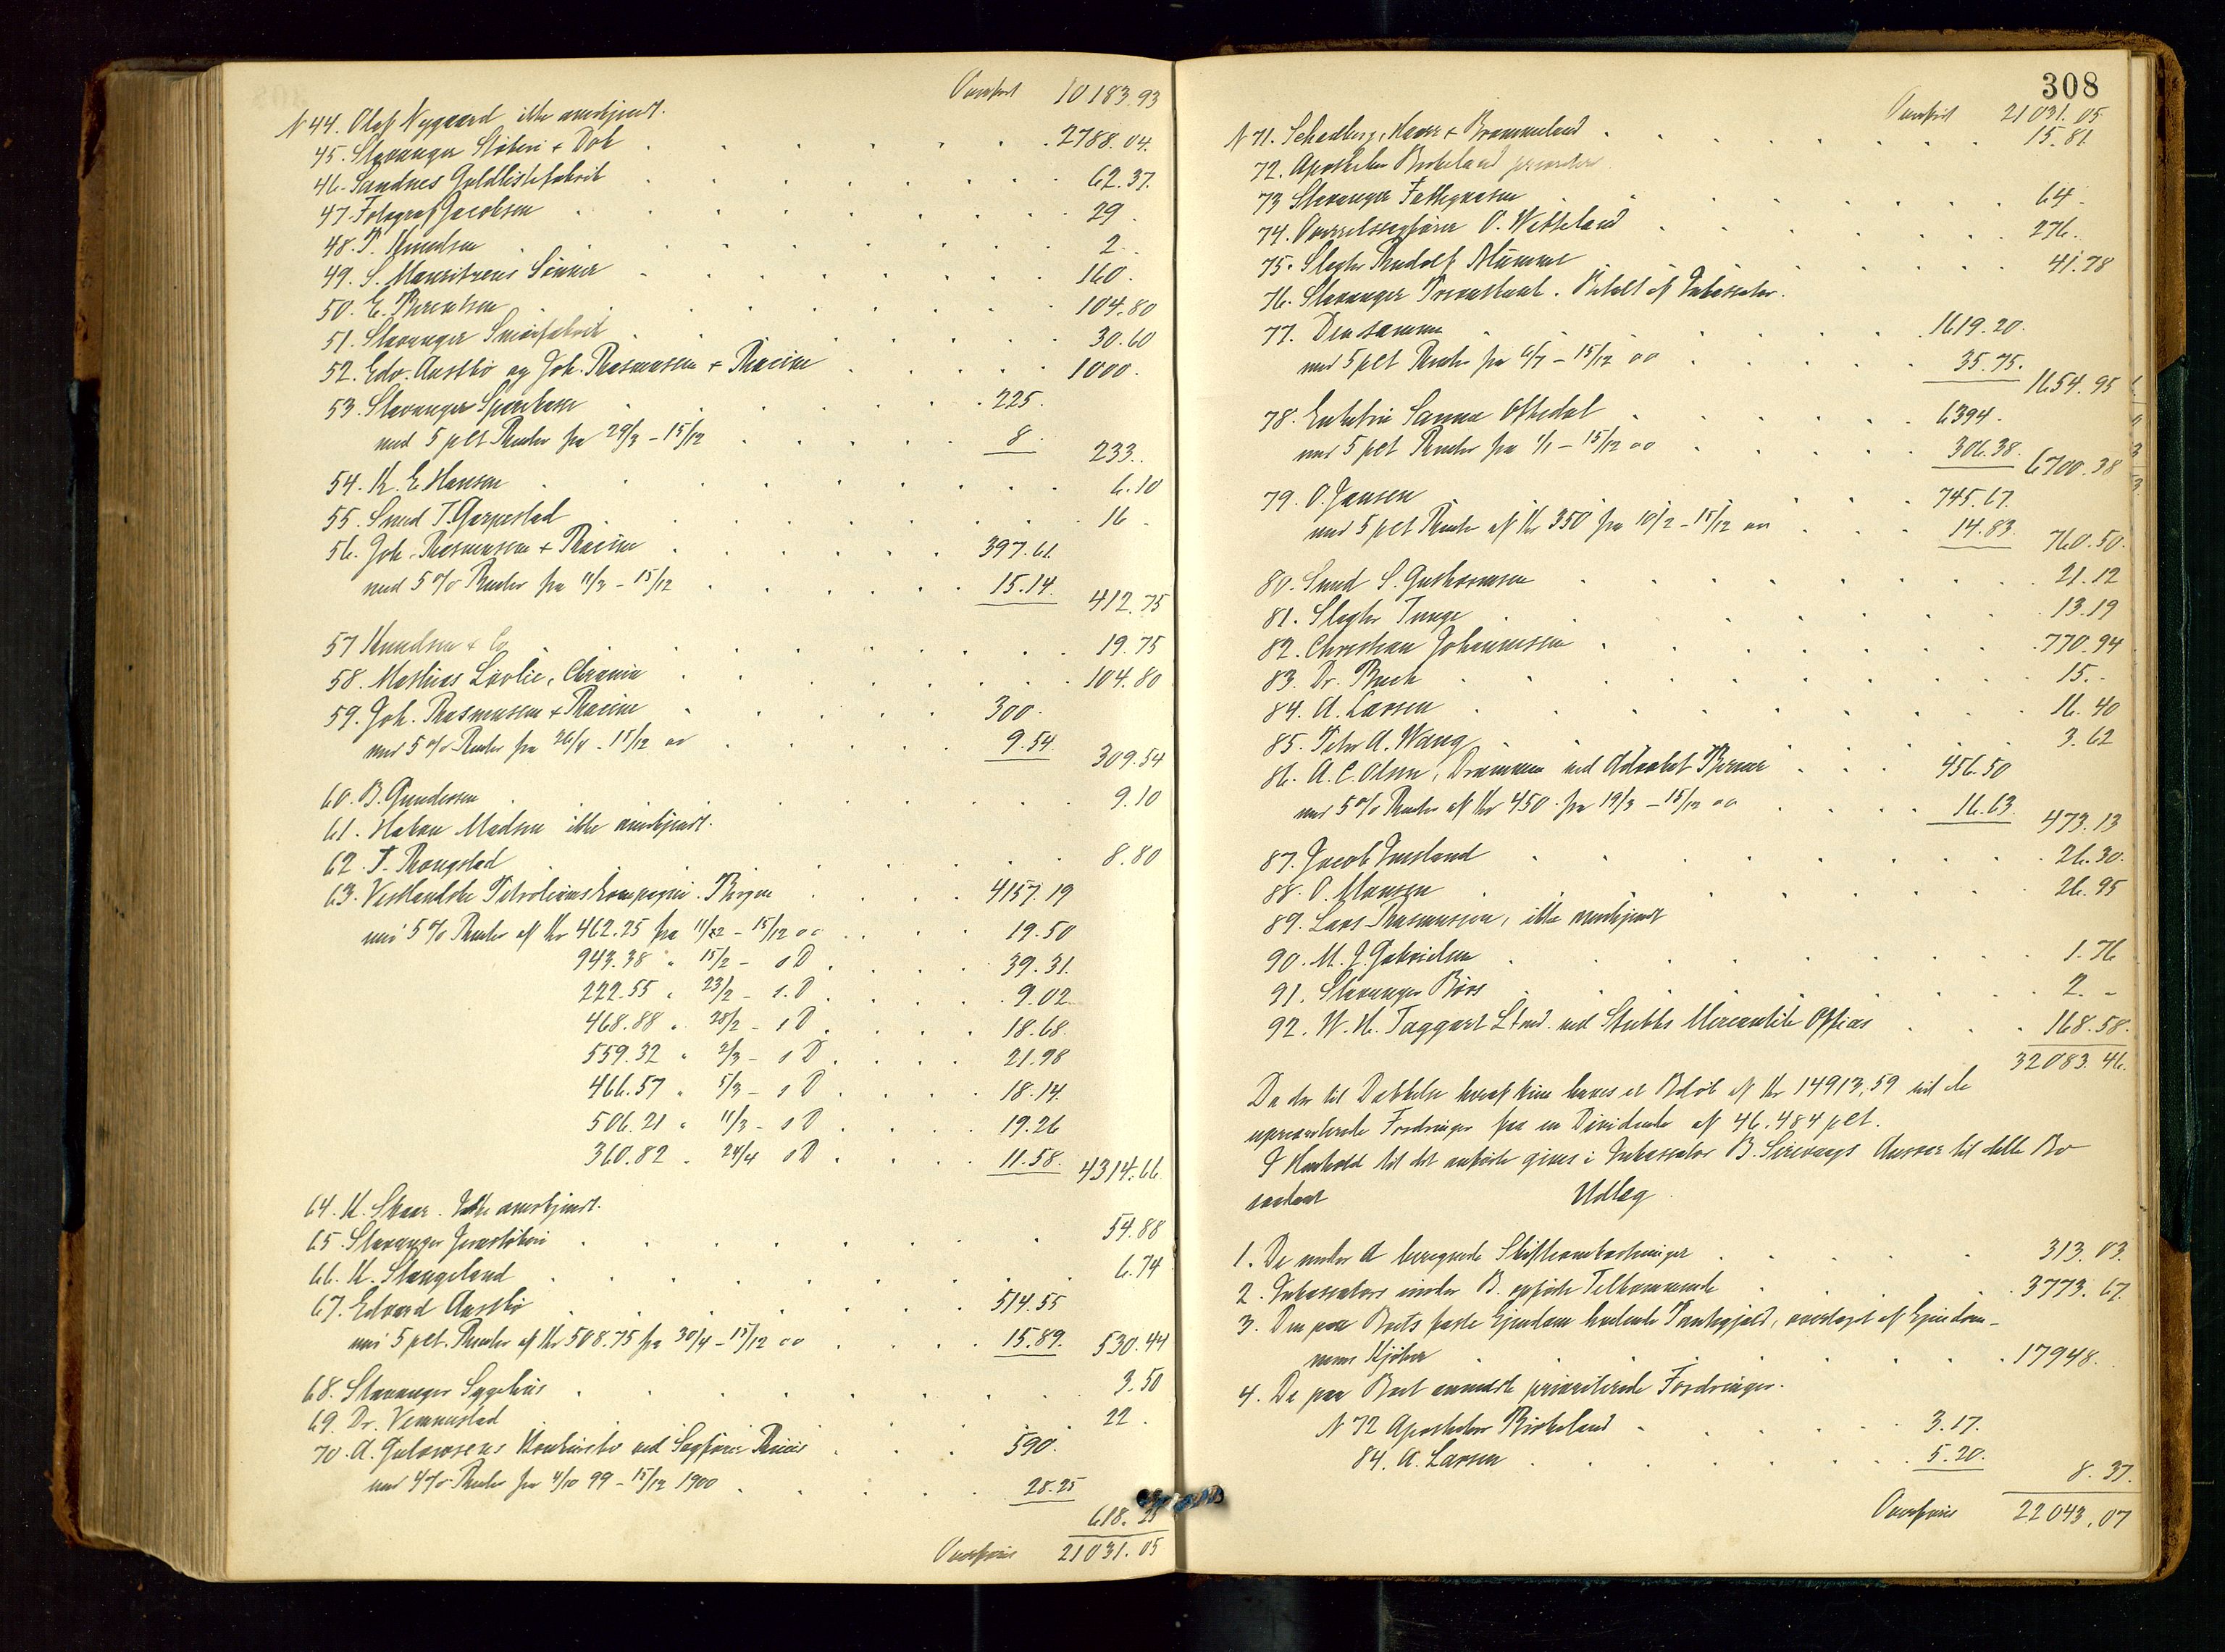 Overført 10183.93
N 44. Olaf Nygaard ikke anerkjendt.
45. Stavanger Støberi & Dok 2788.04.
46. Sandnes Guldlistefabrik 62.37.
47. Fotograf Jacobsen 29.
48. P. Knudsen 2.
49. S. Mauritzens Sønner 160.
50. E. Berentsen 104.80
51. Stavanger Smørfabrik 30.60
52. Edv. Austbø og Joh. Rasmussen & Racine 1000.
53. Stavanger Sparekasse 225.
med 5 pct Renter fra 29/3 - 15/12 8.
233.
54. K. E. Hansen 6.10
55. Smed T. Garpestad 16 -
56. Joh. Rasmussen & Racine 397.61
med 5 % Renter fra 11/3 - 15/12 15.14.
412.75
57 Knudsen & Co 19.75
58. Mathias Løvlie, Chrania 104.80
59. Joh. Rasmussen & Racine 300.
med 5 % Renter fra 26/4 - 15/12 00 9.54.
309.54
60. B. Gundersen 9.10
61. Hakon Madsen ikke anerkjendt.
62. T. Rongstad 8.80
63. Vestlandske Petroleumskompagni. Bergen 4157.19
med 5 % Renter af Kr 462.25 fra 11/2 - 15/12 00 19.50
943.38 " 15/2 - s D 39.31.
222.55 " 23/2 - s. D 9.02
468.88 " 28/2 - s D 18.68.
559.32 " 2/3 - s D 21.98
466.57 " 5/3 - s D 18.14.
506.21 " 11/3 - s D 19.26
360.82 " 24/4 s D 11.58.
4314.66
64. K. Skaar. Ikke anerkjendt.
65. Stavanger Jernstøberi 54.88
66. K. Stangeland 6.74
67. Edvard Austbø 514.55
med 5 pct. Renter af Kr 508.75 fra 30/4 - 15/12 00 15.89.
530.44
68. Stavanger Sygehus 3.50
69. Dr. Vennestad 22.
70. A. Gulowsens Konkursbo ved Sagfører 590.
med 4 % Renter fra 4/10 99 - 15/12 1900 28.25
618.25
Overføres 21031.05
308
Overført 21031.05
N 71. Schadberg, Haar & Brommeland 15.81
72. Apotheker Birkeland prioritere
73 Stavanger Fattigvæsen 64 -
74. Overretssagfører O. Wetteland 276.
75. Slagter Rudolf Mumme 41.78
76. Stavanger Privatbank. Betalt af Inkassator.
77. Den samme 1619.20.
med 5 pct Renter fra 6/7 - 15/12 00 35.75.
1654.95
78. Enkefru Sanna Oftedal 6394.
med 5 pct Renter fra 1/1 - 15/12 00 306.38.
6700.38
79. O. Jansen 745.67.
med 5 pct Rente af Kr 350 fra 10/2 - 15/12 00 14.83.
760.50.
80. Smed S. Guthormsen 21.12
81. Slagter Tunge 13.19
82. Christian Johannessen 770.94
83. Dr. Buch 15.-
84. A. Larsen 16.40
85. Peter A. Wang 3.62
86. A. C. Olsen, Drammen ved Advokat Berner 456.50
med 5 % Renter af Kr 450 fra 19/3 - 15/12 00 16.63.
473.13
87. Jacob Imsland 26.30.
88. O. Monsen 26.95
89. Lars Rasmussen, ikke anerkjendt
90. M. J. Gabrielsen 1.76
91. Stavanger Børs 2. -
92. W. H. Taggart Ltmd. ved Stubbs Mercantile Offices 168.58.
32083.46.
Da der til Dækkelse heraf kun haves et Beløb af Kr 14913,59 vil de
upriviligerede Fordringer faa en Dividende af 46,484 pct.
I Henhold til det anførte gives i Inkassator B. Sirevaags Ansvar til dette Bo
saadant Udlæg.
1. De under A beregnede Skifteomkostninger 313.03.
2. Inkassators under B. opførte Tilkommende 3773.67.
3. Den paa Boets faste Ejendom heftende Pantegjæld, overtaget af Ejendom-
mens Kjøber 17948.
4. De paa Boet anmeldte prioriterede Fordringer.
N 72 Apotheker Birkeland 3.17.
84. A. Larsen 5.20.
8.37.
Overføres 22043.07